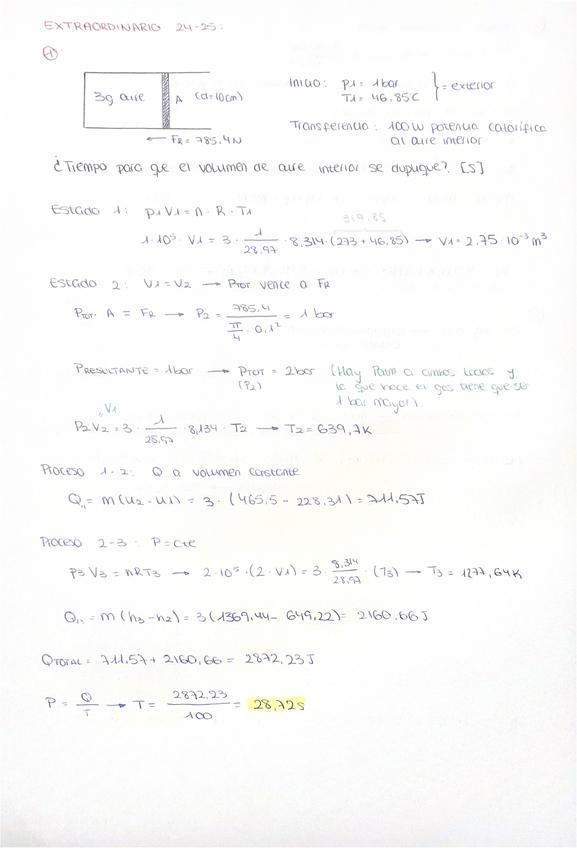 EXTRAORDINARIO 24-25:
①
3g aire A (d=10cm)
← FR = 785.4N
Inicio: P1 = 1bar
T1 = 46.85C } = exterior
Transferencia: 100W potencia calorífica
al aire interior
¿Tiempo para que el volumen de aire interior se duplique? [S]
Estado 1: P1V1 = n·R·T1
319.85
1·10⁵·V1 = 3· 1/28.97 ·8.314·(273+46.85) → V1 = 2.75·10⁻³m³
Estado 2: V1=V2 → Ptot vence a FR
Ptot·A = FR → P2 = 785.4/(π/4·0.1²) = 1 bar
PRESULTANTE = 1bar → PTOT = 2bar (Hay Patm a ambos lados y
(P2) lo que hace el gas tiene que ser
1 bar mayor).
"V1
P2V2 = 3· 1/28.97 ·8,134·T2 → T2 = 639,7K
Proceso 1-2: Q a volumen constante
Q₁₂ = m(u2-u1) = 3·(465.5-228.31) = 711.57J
Proceso 2-3: P=cte
P3V3 = nRT3 → 2·10⁵·(2·V1) = 3 8,314/28.97 ·(T3) → T3 = 1277,64K
Q₂₃ = m(h3-h2) = 3(1369.44-649.22) = 2160.66J
QTOTAL = 711.57+2160,66 = 2872,23J
P = Q/T → T = 2872,23/100 = 28,72s